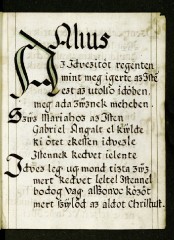 Alius
AZ Idvezitöt regenten
mint meg igerte az Iste
ezt az utolso idöben,
meg ada Zŭznek meheben.
Szŭz Mariahoz az Isten
Gabriel Angalt el kŭlde
ki ötet ekessen idvezle
Istennek kedvet ielente
Idvez leg ug mond tizta Zŭz
mert kedvet leltel Istennel
bodog vag assonoc közöt
mert szŭlöd az aldot Christust.